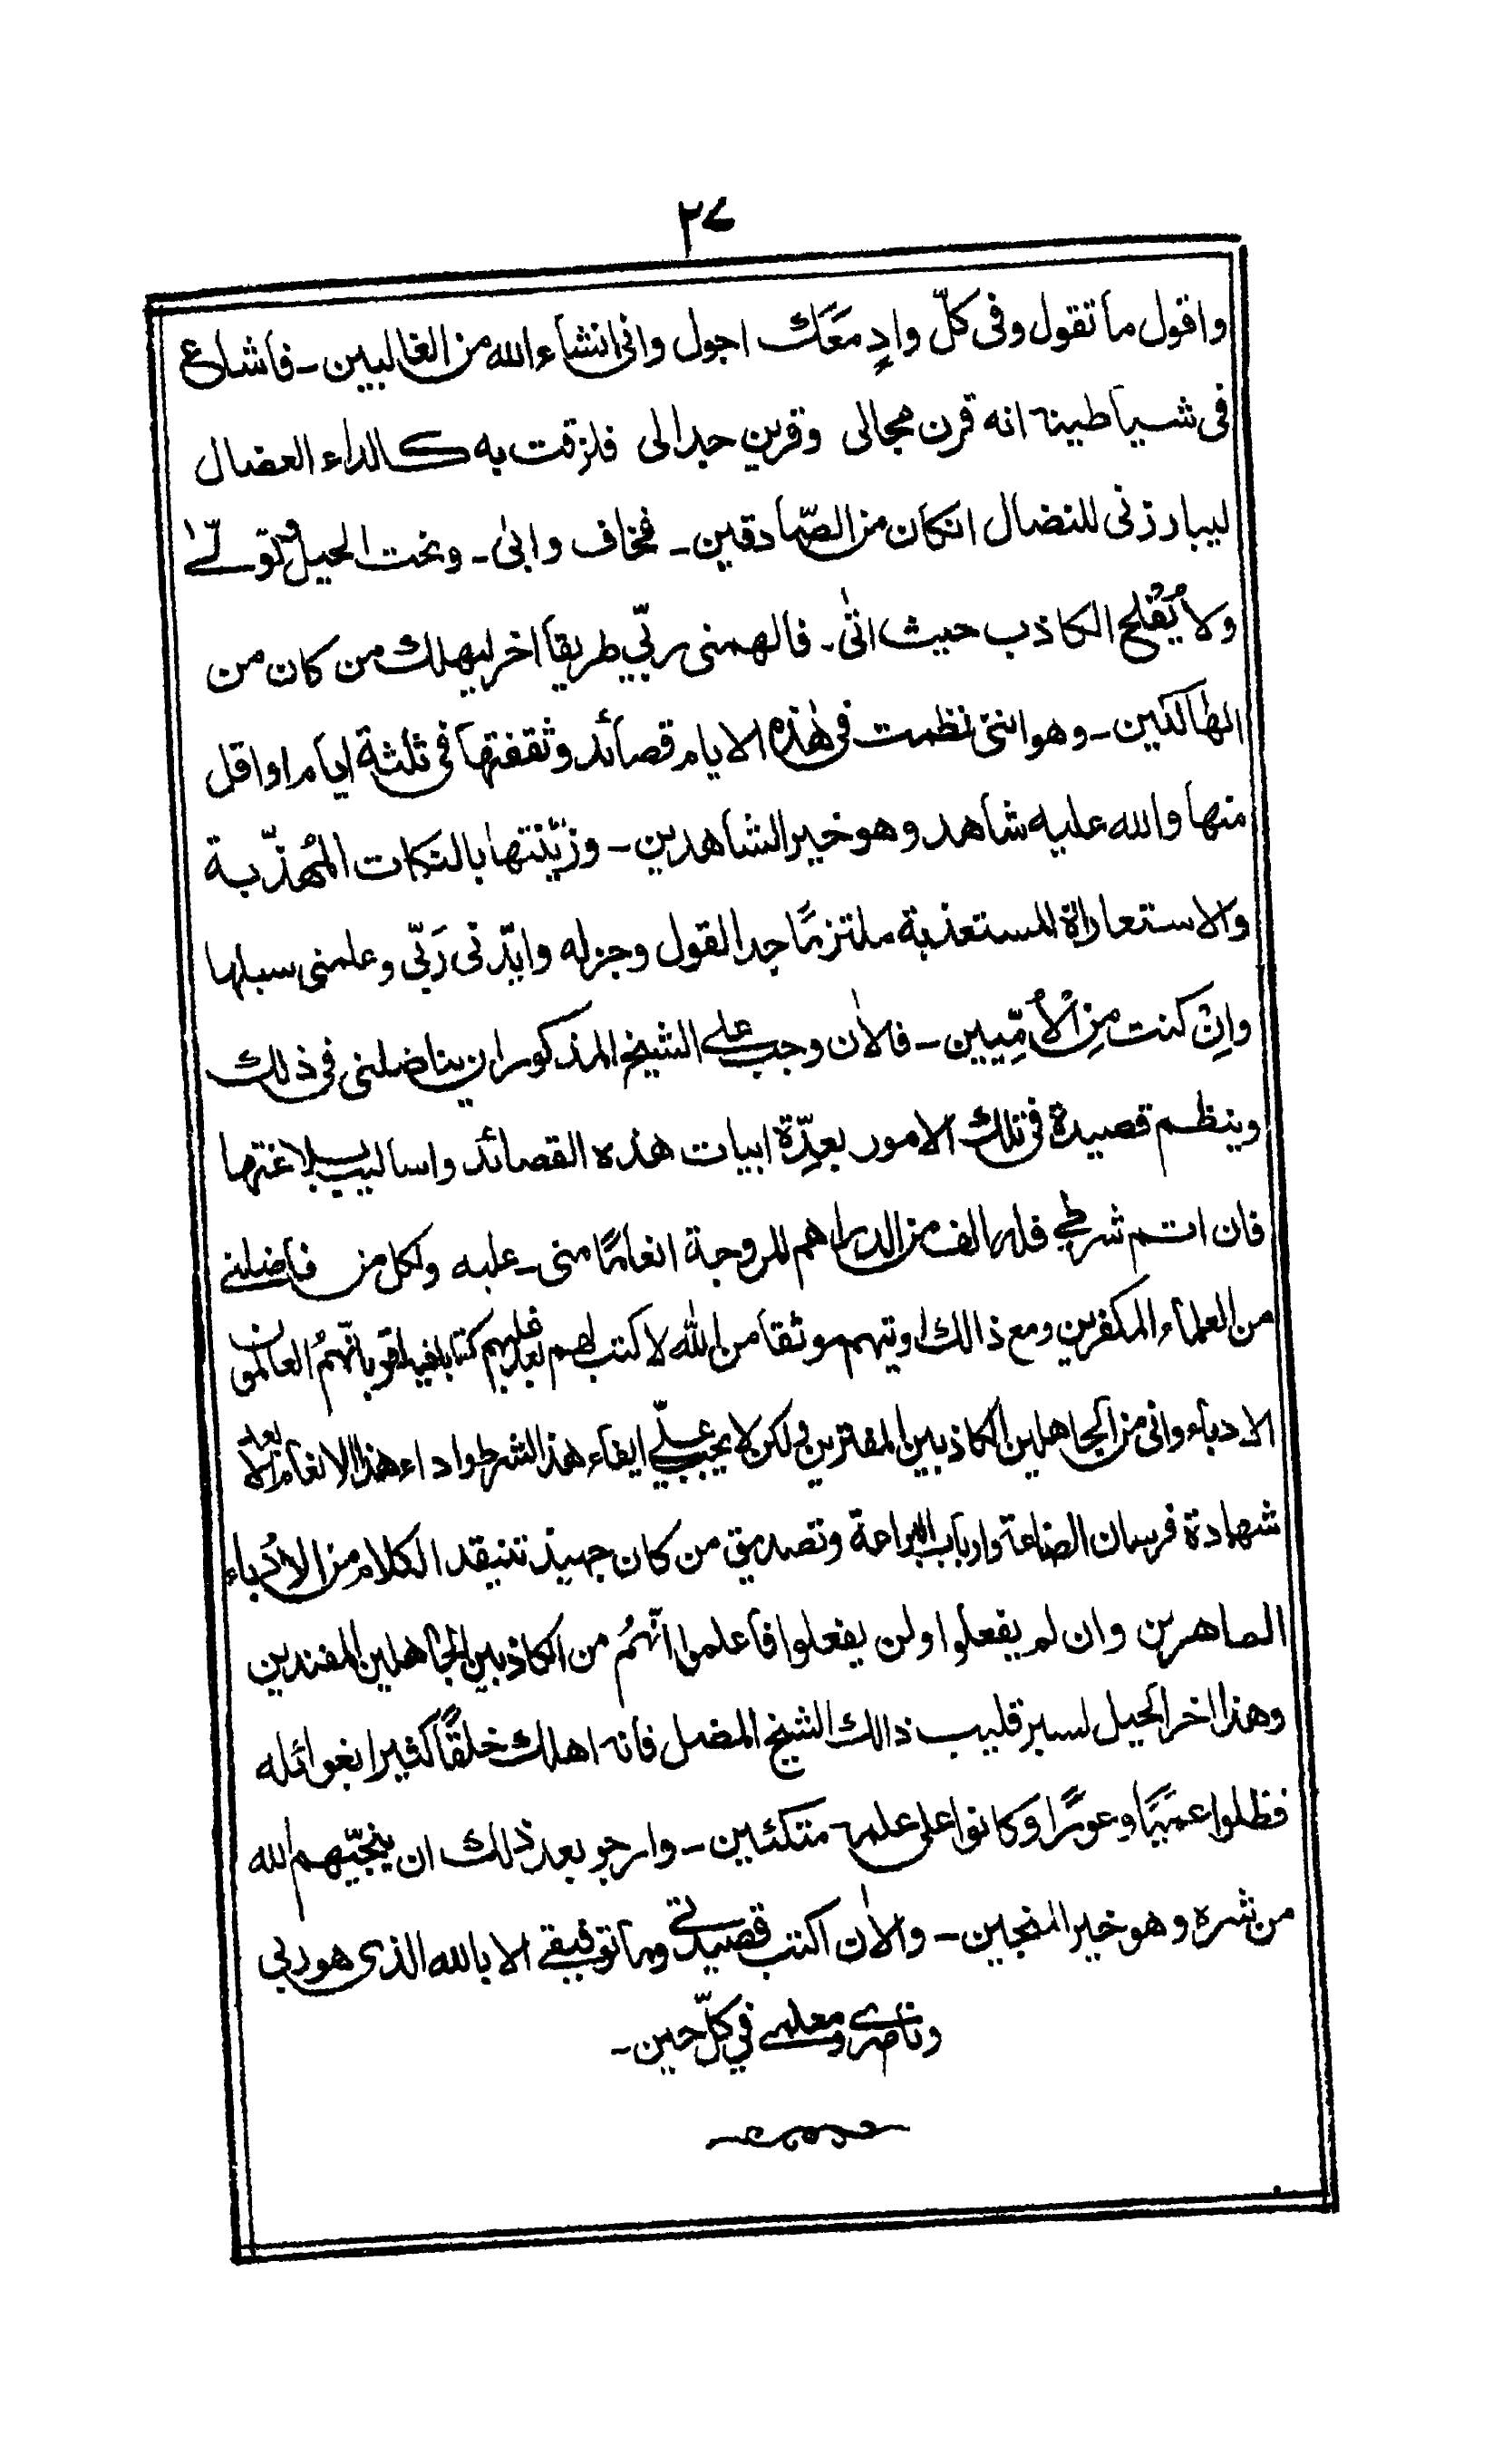 ٢٧
واقول ما تقول وفی کلّ وادٍ مَعَکَ اجول وانی انشاء الله من الغالبین ـ فاشاع
فی شیاطینه انه قرن مجالی وقرین جدالی فلزقت به کالداء العضال
لیبارزنی للنضال انکان من الصّادقین ـ فخاف وابٰی ـ ونحت الحیل وتولّٰی
ولا یُفلح الکاذب حیث اتٰی ـ فالهمنی ربّی طریقا اخر لیهلک من کان من
الهالکین ـ وهو اننی نظمت فی هٰذه الایام قصائد وثقفتها فی ثلثة ایام او اقل
منها والله علیه شاهد وهو خیر الشاهدین ـ وزیّنتها بالنکات المُهذّبة
والاستعاراة المستعذبة ملتزمًا جد القول وجزله وایّدنی رَبّی وعلمنی سبلها
وان کنت من الاُمّیین ـ فالاٰن وجب علی الشیخ المذکور ان یناضلنی فی ذلک
وینظم قصیدة فی تلک الامور بعدّة ابیات هذه القصائد واسالیب بلاغتها
فان اتم شرطی فله الف من الدراهم المروجة انعامًا منی ـ علیه ولکل من ناضلنی
من العلماء المکفرین ومع ذالک اوتیهم موثقا من الله لاکتب لهم بعد غلبهم کتابا فیه اقر بانّهمُ العالمون
الادباء وانی من الجاهلین الکاذبین المفترین ولکن لا یجب علیّ ایفاء هذ الشرط واداء هذا الانعام الا بعد
شهادة فرسان الصناعة وارباب البراعة وتصدیق من کان جهبذ تنیقد الکلام من الادباء
الماهرین وان لم یفعلوا ولن یفعلوا فاعلموا انّهمُ من الکاذبین الجاهلین المفندین
وهذا اخر الحیل لسبر قلیب ذالک الشیخ المضل فانه اهلک خلقًا کثیرا بغوائله
فظلوا عمیًا وعورًا وکانوا علی علمه متکئین ـ وارجو بعد ذلک ان ینجّیهم الله
من شره وهو خیر المنجین ـ والاٰن اکتب قصیدتی وما توفیقی الا بالله الذی هو ربی
وناصری ومعلمی فی کلّ حین ـ